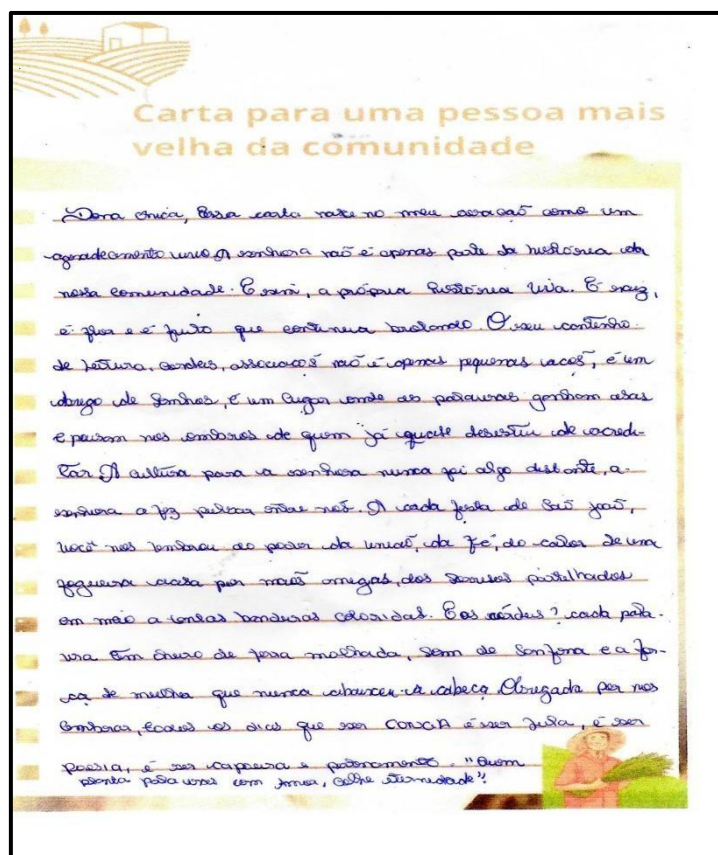 Carta para uma pessoa mais
velha da comunidade
Dona Chica, Essa carta nasce no meu coração como um
agradecimento vivo. A senhora não é apenas parte da história da
nossa comunidade. É sim, a própria história viva. É raiz,
é flor e é fruto que continua brotando. O seu cantinho
de leitura, cordeis, não é apenas pequenas, é um
abrigo de sonhos, é um lugar onde as palavras ganham asas
e pousam nos ombros de quem já quase desistiu de acredi-
tar. A cultura para a senhora nunca foi algo distante, a
senhora a fez pulsar entre nós. A cada festa de São joão,
você nos lembrou do poder da união, da fé, do calor de um
fogueira acesa por mãos amigas, dos sorrisos partilhados
em meio a tantas bandeiras coloridas. E os cordeis? cada pala-
vra tem cheiro de terra molhada, som de sanfona e a for-
ça de mulher que nunca abaixou a cabeça. Obrigada por nos
lembrar, todos os dias que ser é ser, é ser
poesia, é ser capoeira e. "Quem
planta palavras com amor, colhe eternidade".